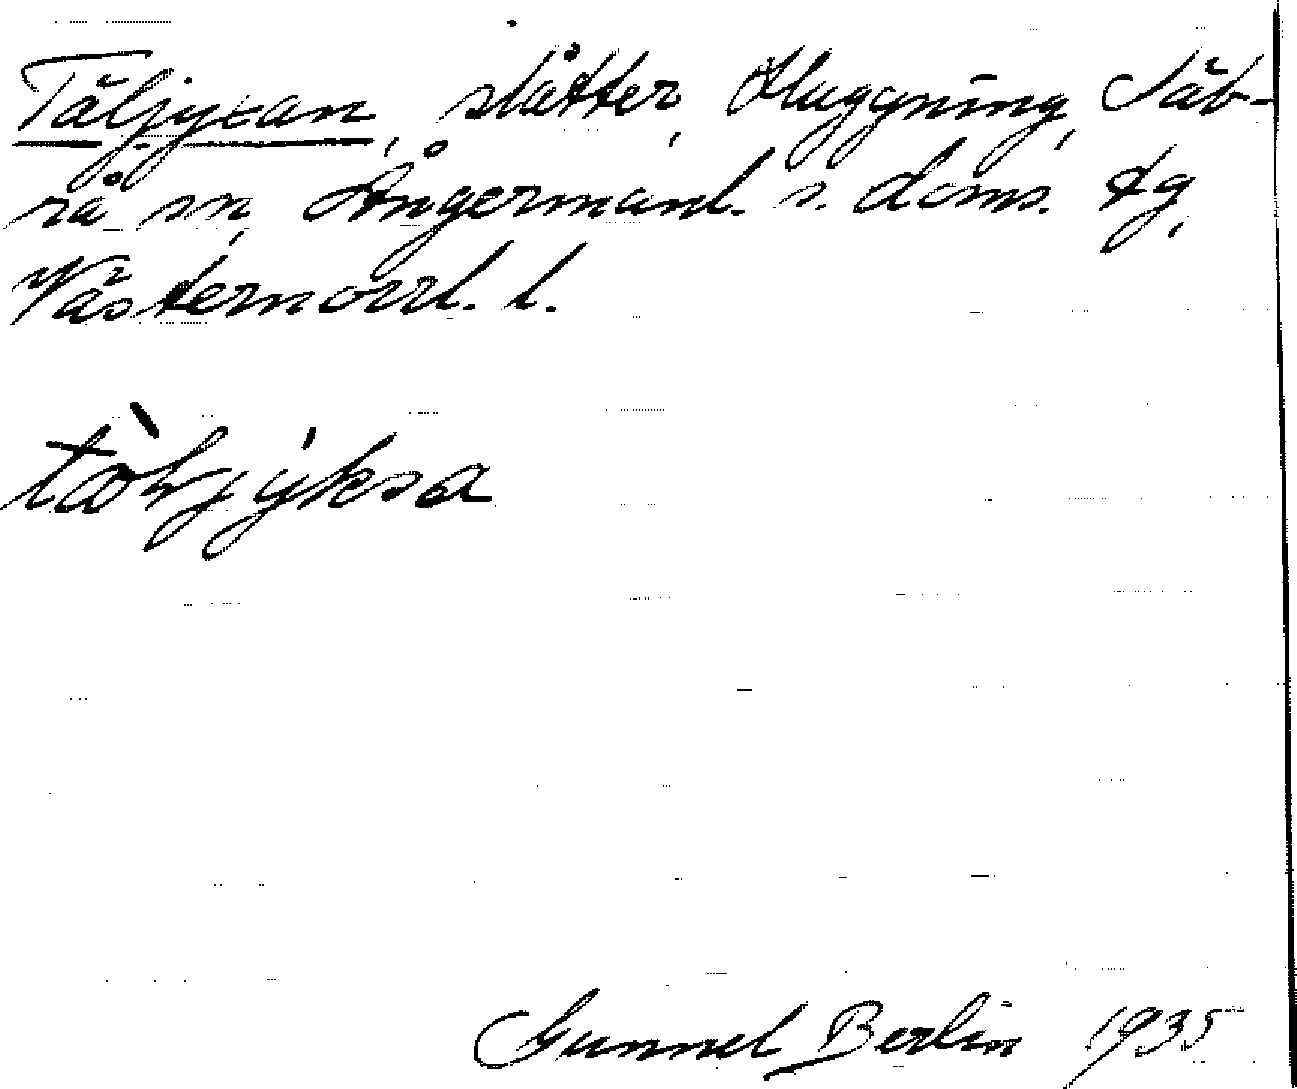 Täljyxan, slåtter, Huggning, Säb-
rå sn, Ångermanl. s. doms. tg,
Västernorrl. l.
Gunnel Berlin 1935